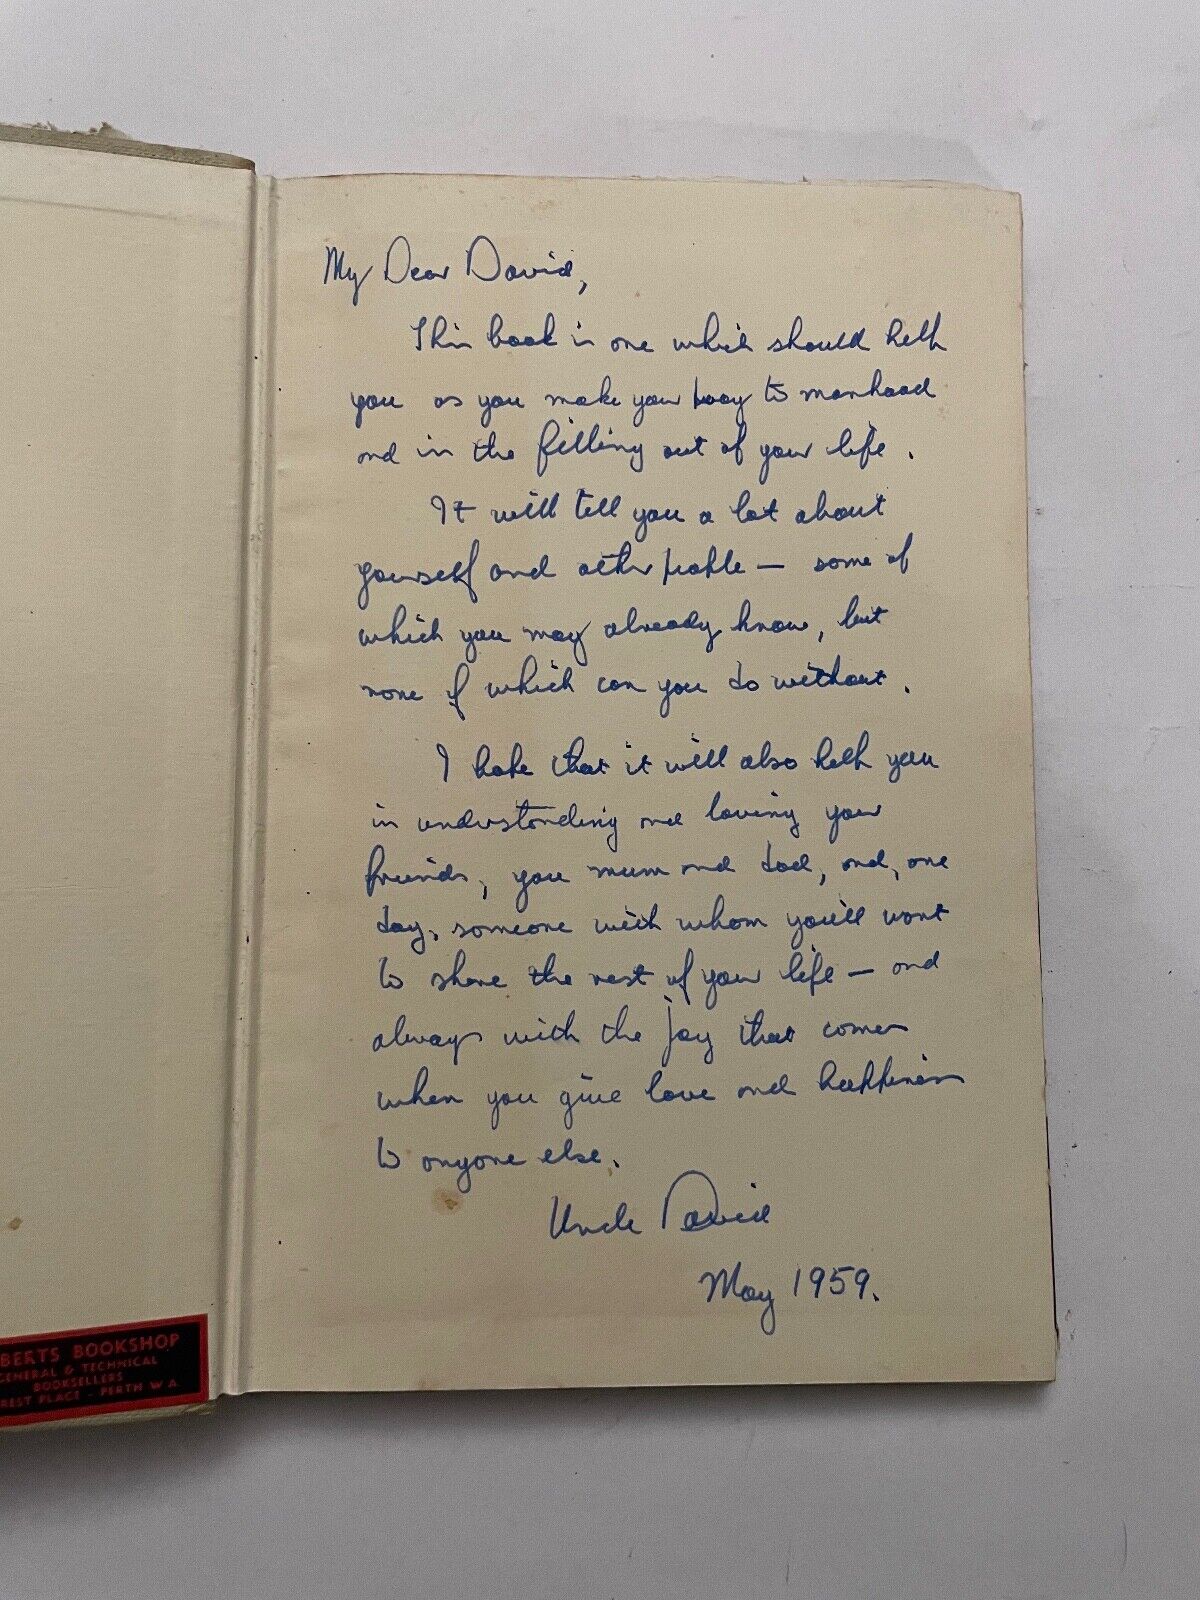 My Dear David,
This book is one which should help
you as you make your way to manhood
and in the filling out of your life.
It will tell you a lot about
yourself and other people — some of
which you may already know, but
none of which can you do without.
I hope that it will also help you
in understanding and loving your
friends, your mum and dad, and, one
day, someone with whom you'll want
to share the rest of your life — and
always with the joy that comes
when you give love and happiness
to anyone else.
Uncle David
May 1959.
BERTS BOOKSHOP
GENERAL & TECHNICAL
BOOKSELLERS
REST PLACE - PERTH W.A.